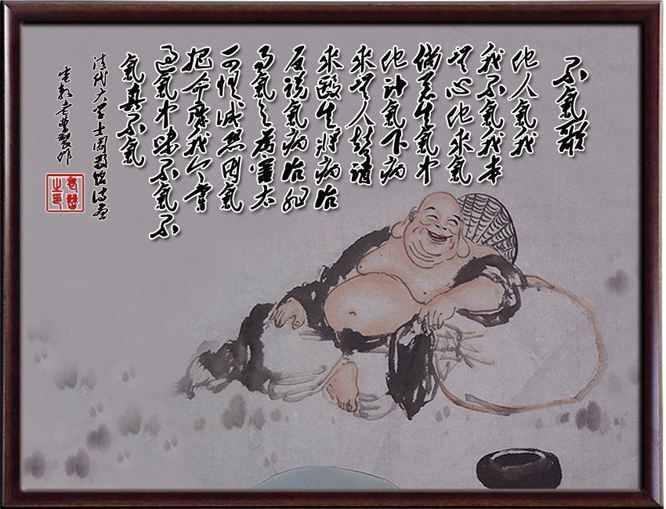 不氣歌
他人氣我
我不氣我本
無心他來氣
倘若生氣中
他計氣下病
來無人替請
來醫生將病治
反說氣病治非
易氣之為害太
可惧誠然因氣
把命廢我今嘗
過氣中味不氣不
氣真不氣
清代大學士閻敬銘詩